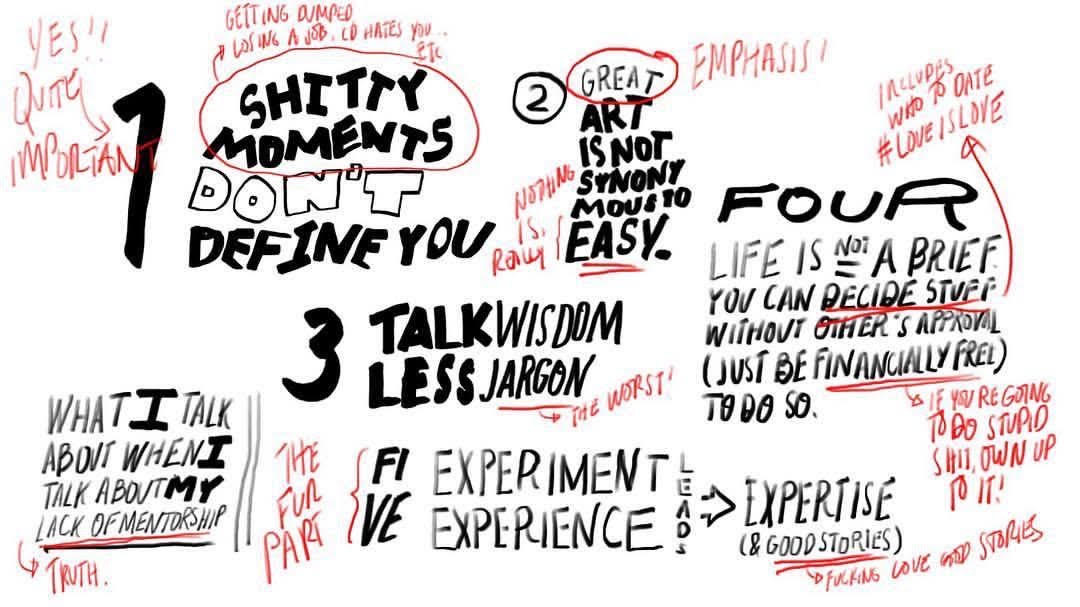 YES!!
QUITE
IMPORTANT
1
GETTING DUMPED
LOSING A JOB, CD HATES YOU..
ETC
SHITTY
MOMENTS
DON'T
DEFINE YOU
2
GREAT
ART
IS NOT
SYNONY
MOUS TO
EASY.
EMPHASIS!
NOTHING
IS.
REALLY
INCLUDES
WHO TO DATE
#LOVEISLOVE
FOUR
LIFE IS NOT A BRIEF.
YOU CAN DECIDE STUFF
WITHOUT OTHER'S APPROVAL
(JUST BE FINANCIALLY FREE)
TO DO SO.
IF YOU'RE GOING
TO DO STUPID
SHIT, OWN UP
TO IT!
3
TALK WISDOM
LESS JARGON
THE WORST!
WHAT I TALK
ABOUT WHEN I
TALK ABOUT MY
LACK OF MENTORSHIP
TRUTH.
THE
FUN
PART
FI
VE
EXPERIMENT
EXPERIENCE
LEADS
EXPERTISE
(& GOOD STORIES)
FUCKING LOVE GOOD STORIES